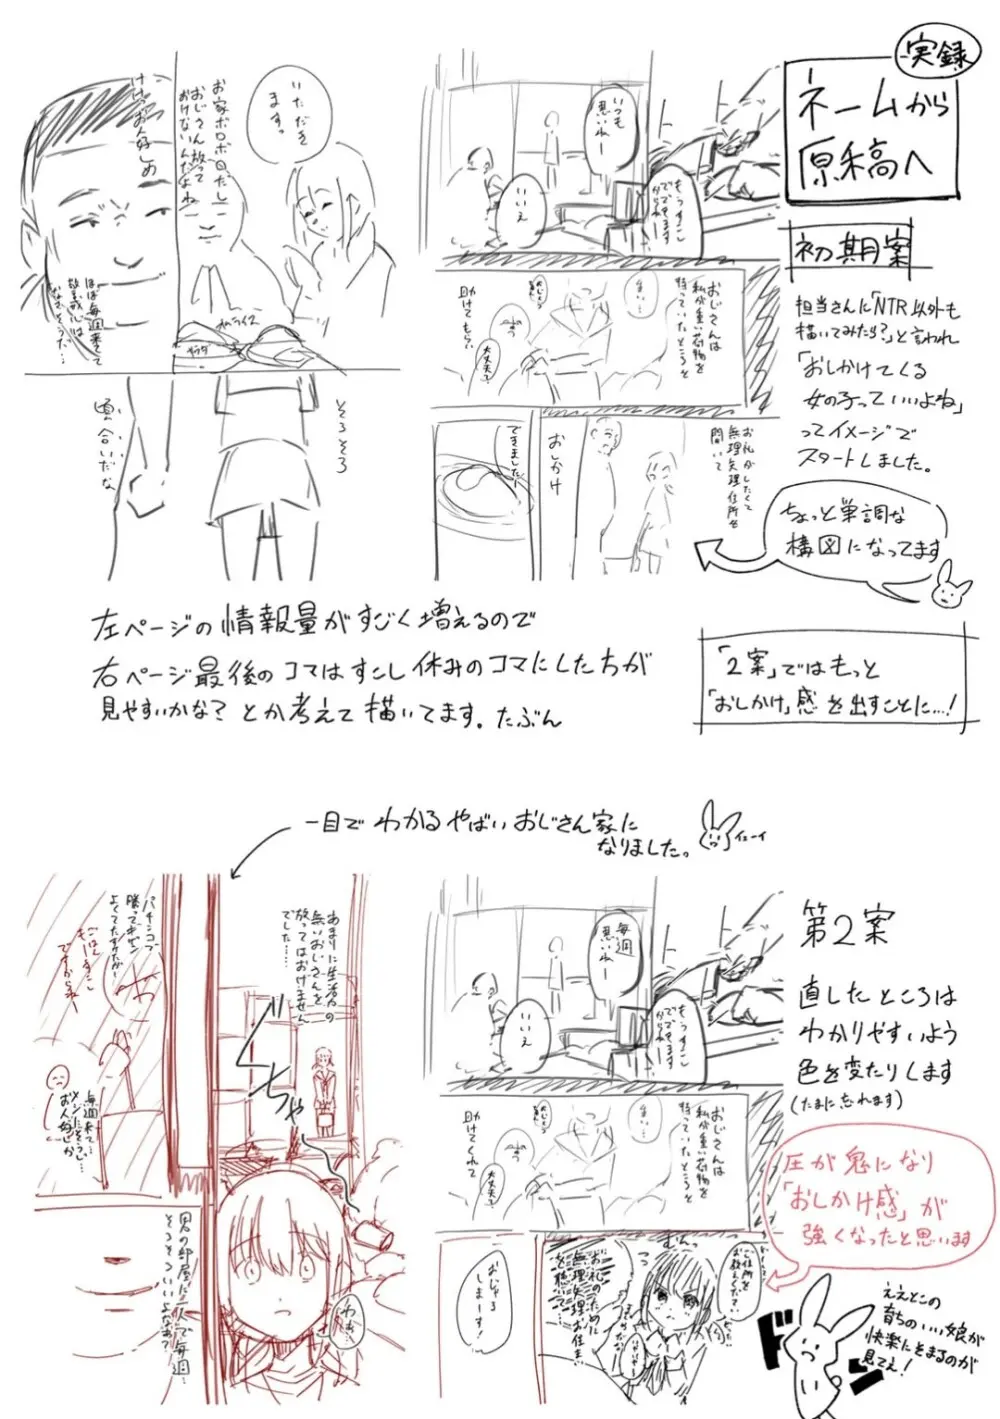 実録
ネームから
原稿へ
初期案
担当さんに「NTR以外も
描いてみたら?」と言われ
「おしかけてくる
女の子っていいよね」
ってイメージで
スタートしました。
ちょっと単調な
構図になってます
いつも
悪いねー
いいえ
もうすこし
でできます
からねー
おじさんは
私が重い荷物を
持っていたところを
助けてもらい
大丈夫?
お礼がしたくて
無理矢理住所を
聞いて
おしかけ
できましたー
いただき
ますっ
お家ボロボロだし
おじさん放って
おけないんだよね
オムライス
サラダ
けけっお人好しめ
ほぼ毎週来てて
警戒心は
なさそうだ…
そろそろ
頃合いだな
左ページの情報量がすごく増えるので
右ページ最後のコマはすこし休みのコマにした方が
見やすいかな?とか考えて描いてます。たぶん
「2案」ではもっと
「おしかけ」感を出すことに…!
一目でわかるやばいおじさん家に
なりました。
イエーイ
第2案
直したところは
わかりやすいよう
色を変たりします
(たまに忘れます)
毎週
悪いねー
いいえ
もうすこし
でできます
からねー
おじさんは
私が重い荷物を
持っていたところを
助けてくれて
大丈夫?
圧が鬼になり
「おしかけ感」が
強くなったと思います
ご住所を
お教えくださいっ
お礼のために
無理矢理お住まい
を聴いて…
おじゃま
しまーす!
あまりに生活力の
無いおじさんを
放ってはおけません
でした……
ぐちゃ
わぁ…
パチンコで
勝ってオゼン
よくてたすかたがー
ごはん
もーすこし
ですからねー
毎週来て…
お人好しか
男の部屋に一人で毎週…
そろそろいいよなぁ?
ええとこの
育ちのいい娘が
快楽にそまるのが
見てえ!
ドン